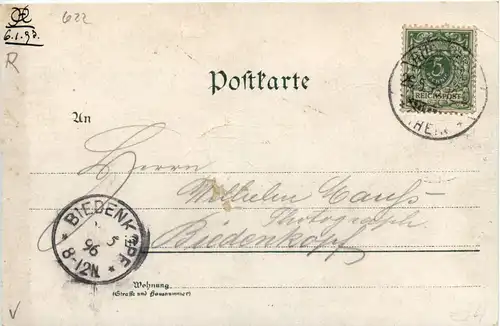 622
6.1.93.
R
Postkarte
5
REICHSPOST
An
Herrn
Wilhelm
Photograph
Biedenkopf
BIEDENKOPF
5
96
8-12N.
Wohnung
(Straße und Hausnummer)
V